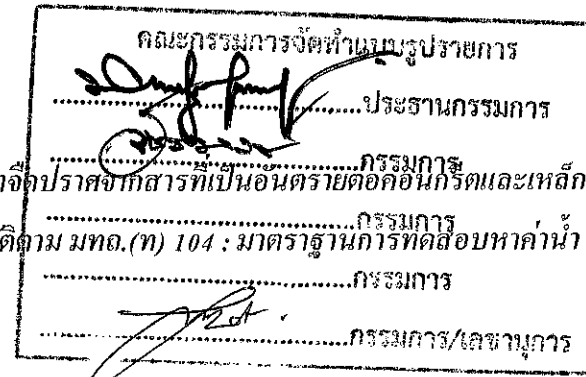 คณะกรรมการจัดทำแบบรูปรายการ
ประธานกรรมการ
กรรมการ
จืดปราศจากสารที่เป็นอันตรายต่อคอนกรีตและเหล็ก
กรรมการ
ติตาม มทถ.(ท) 104 : มาตราฐานการทดสอบหาค่าน้ำ
กรรมการ
กรรมการ/เลขานุการ